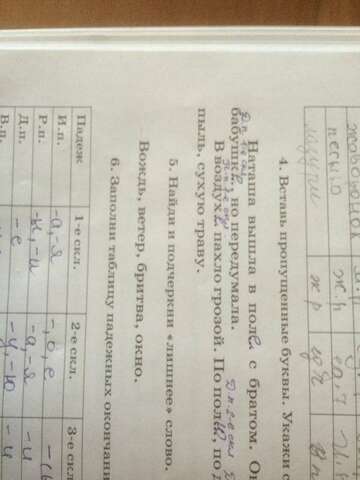 4. Вставь пропущенные буквы. Укажи с
Наташа вышла в поле с братом. Он
бабушке, но передумала.
В воздухе пахло грозой. По полю, по
пыль, сухую траву.
5. Найди и подчеркни «лишнее» слово.
Вождь, ветер, бритва, окно.
6. Заполни таблицу падежных окончани
Падеж 1-е скл. 2-е скл. 3-е скл.
И.п. -а, -я -, о, е
Р.п. -ы, -и -а, -я -и
Д.п. -е -у, -ю -и
В.п.